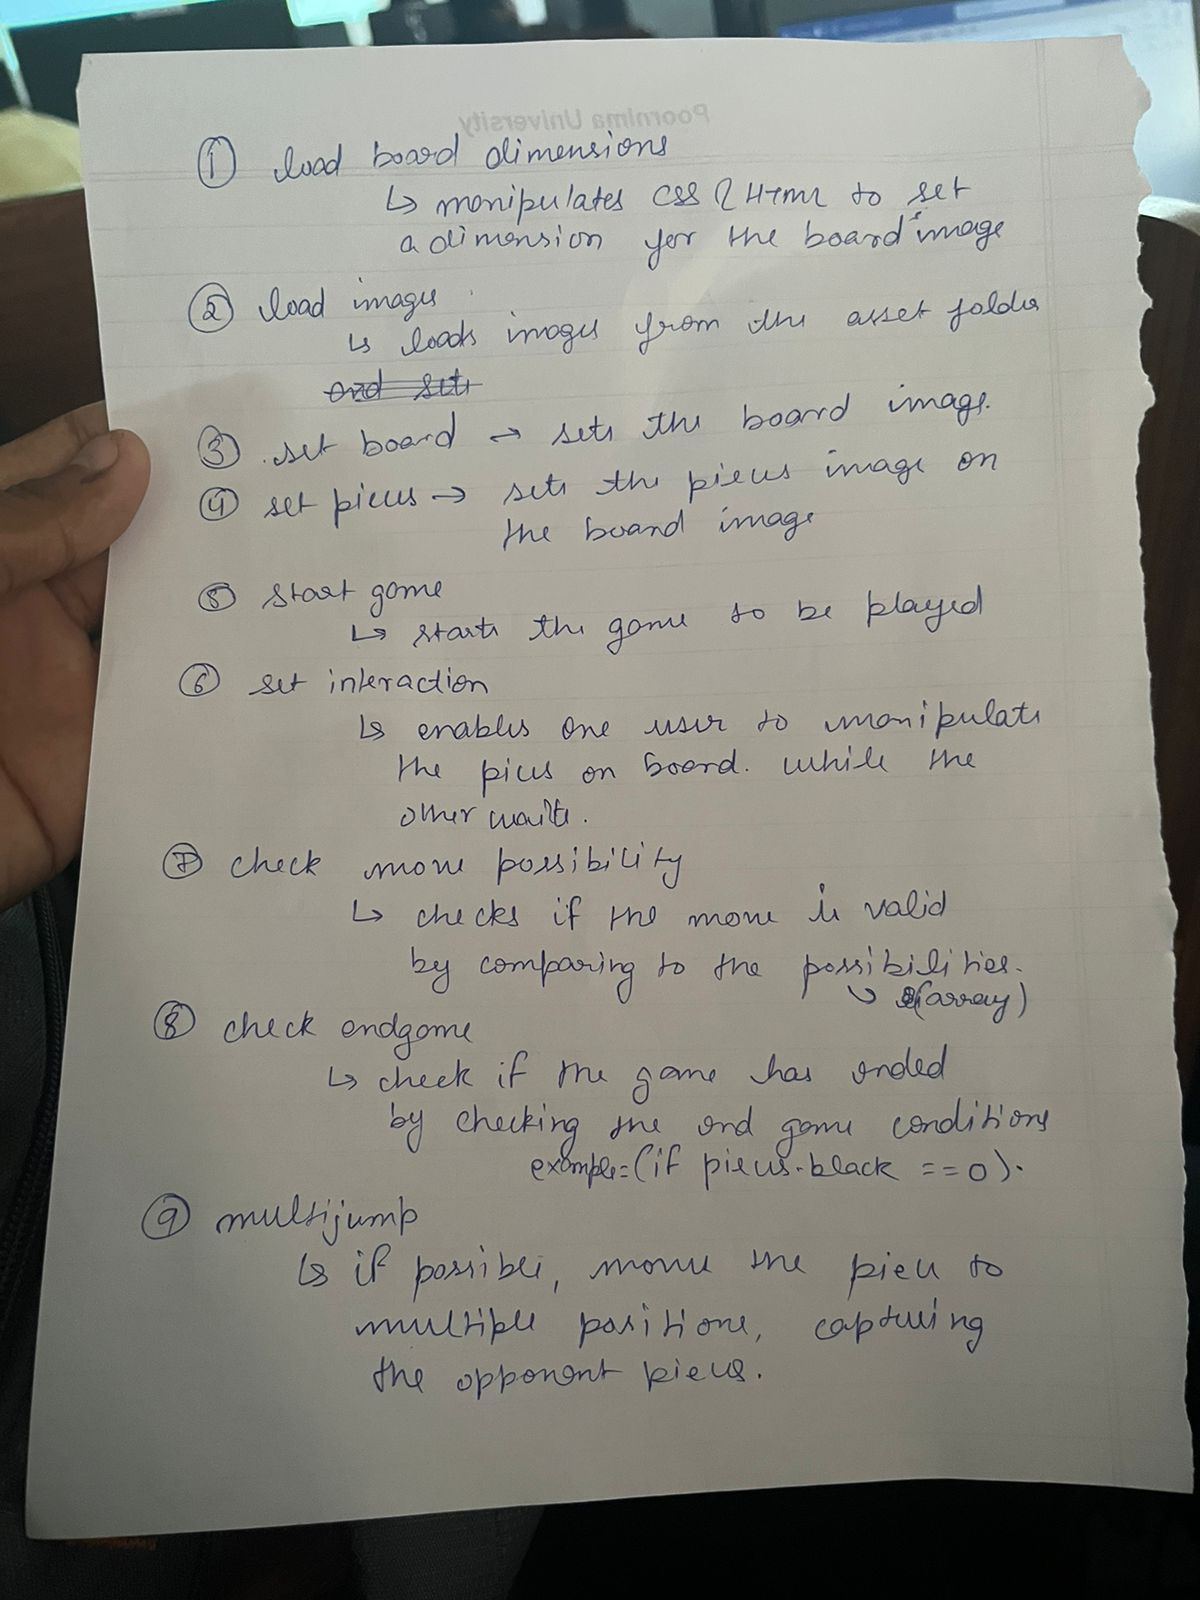 Poornima University
① load board dimensions
↳ manipulates CSS & HTML to set
a dimension for the board image
② load images
↳ loads images from the asset folder
and sets
③ set board → sets the board image.
④ set pieces → sets the pieces image on
the board image
⑤ start game
↳ starts the game to be played
⑥ set interaction
↳ enables one user to manipulate
the pices on board. while the
other waits.
⑦ check move possibility
↳ checks if the move is valid
by comparing to the possibilities.
↳ (array)
⑧ check endgame
↳ check if the game has ended
by checking the end game conditions
example=(if pieces.black ==0).
⑨ multijump
↳ if possible, move the piece to
multiple positions, capturing
the opponent pieces.